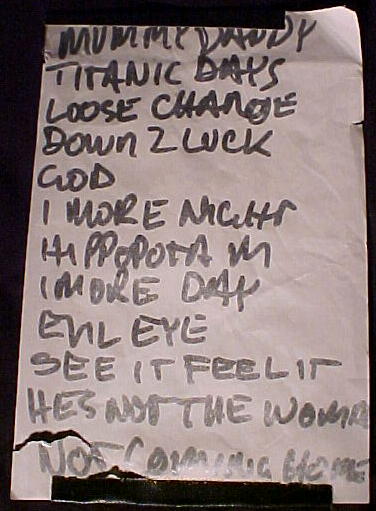 MUMMY DADDY
TITANIC DAYS
LOOSE CHANGE
DOWN 2 LUCK
GOD
1 MORE NIGHT
HIPPOPOTAM
1 MORE DAY
EVIL EYE
SEE IT FEEL IT
HES NOT THE WOMA
NOT COMING HOME